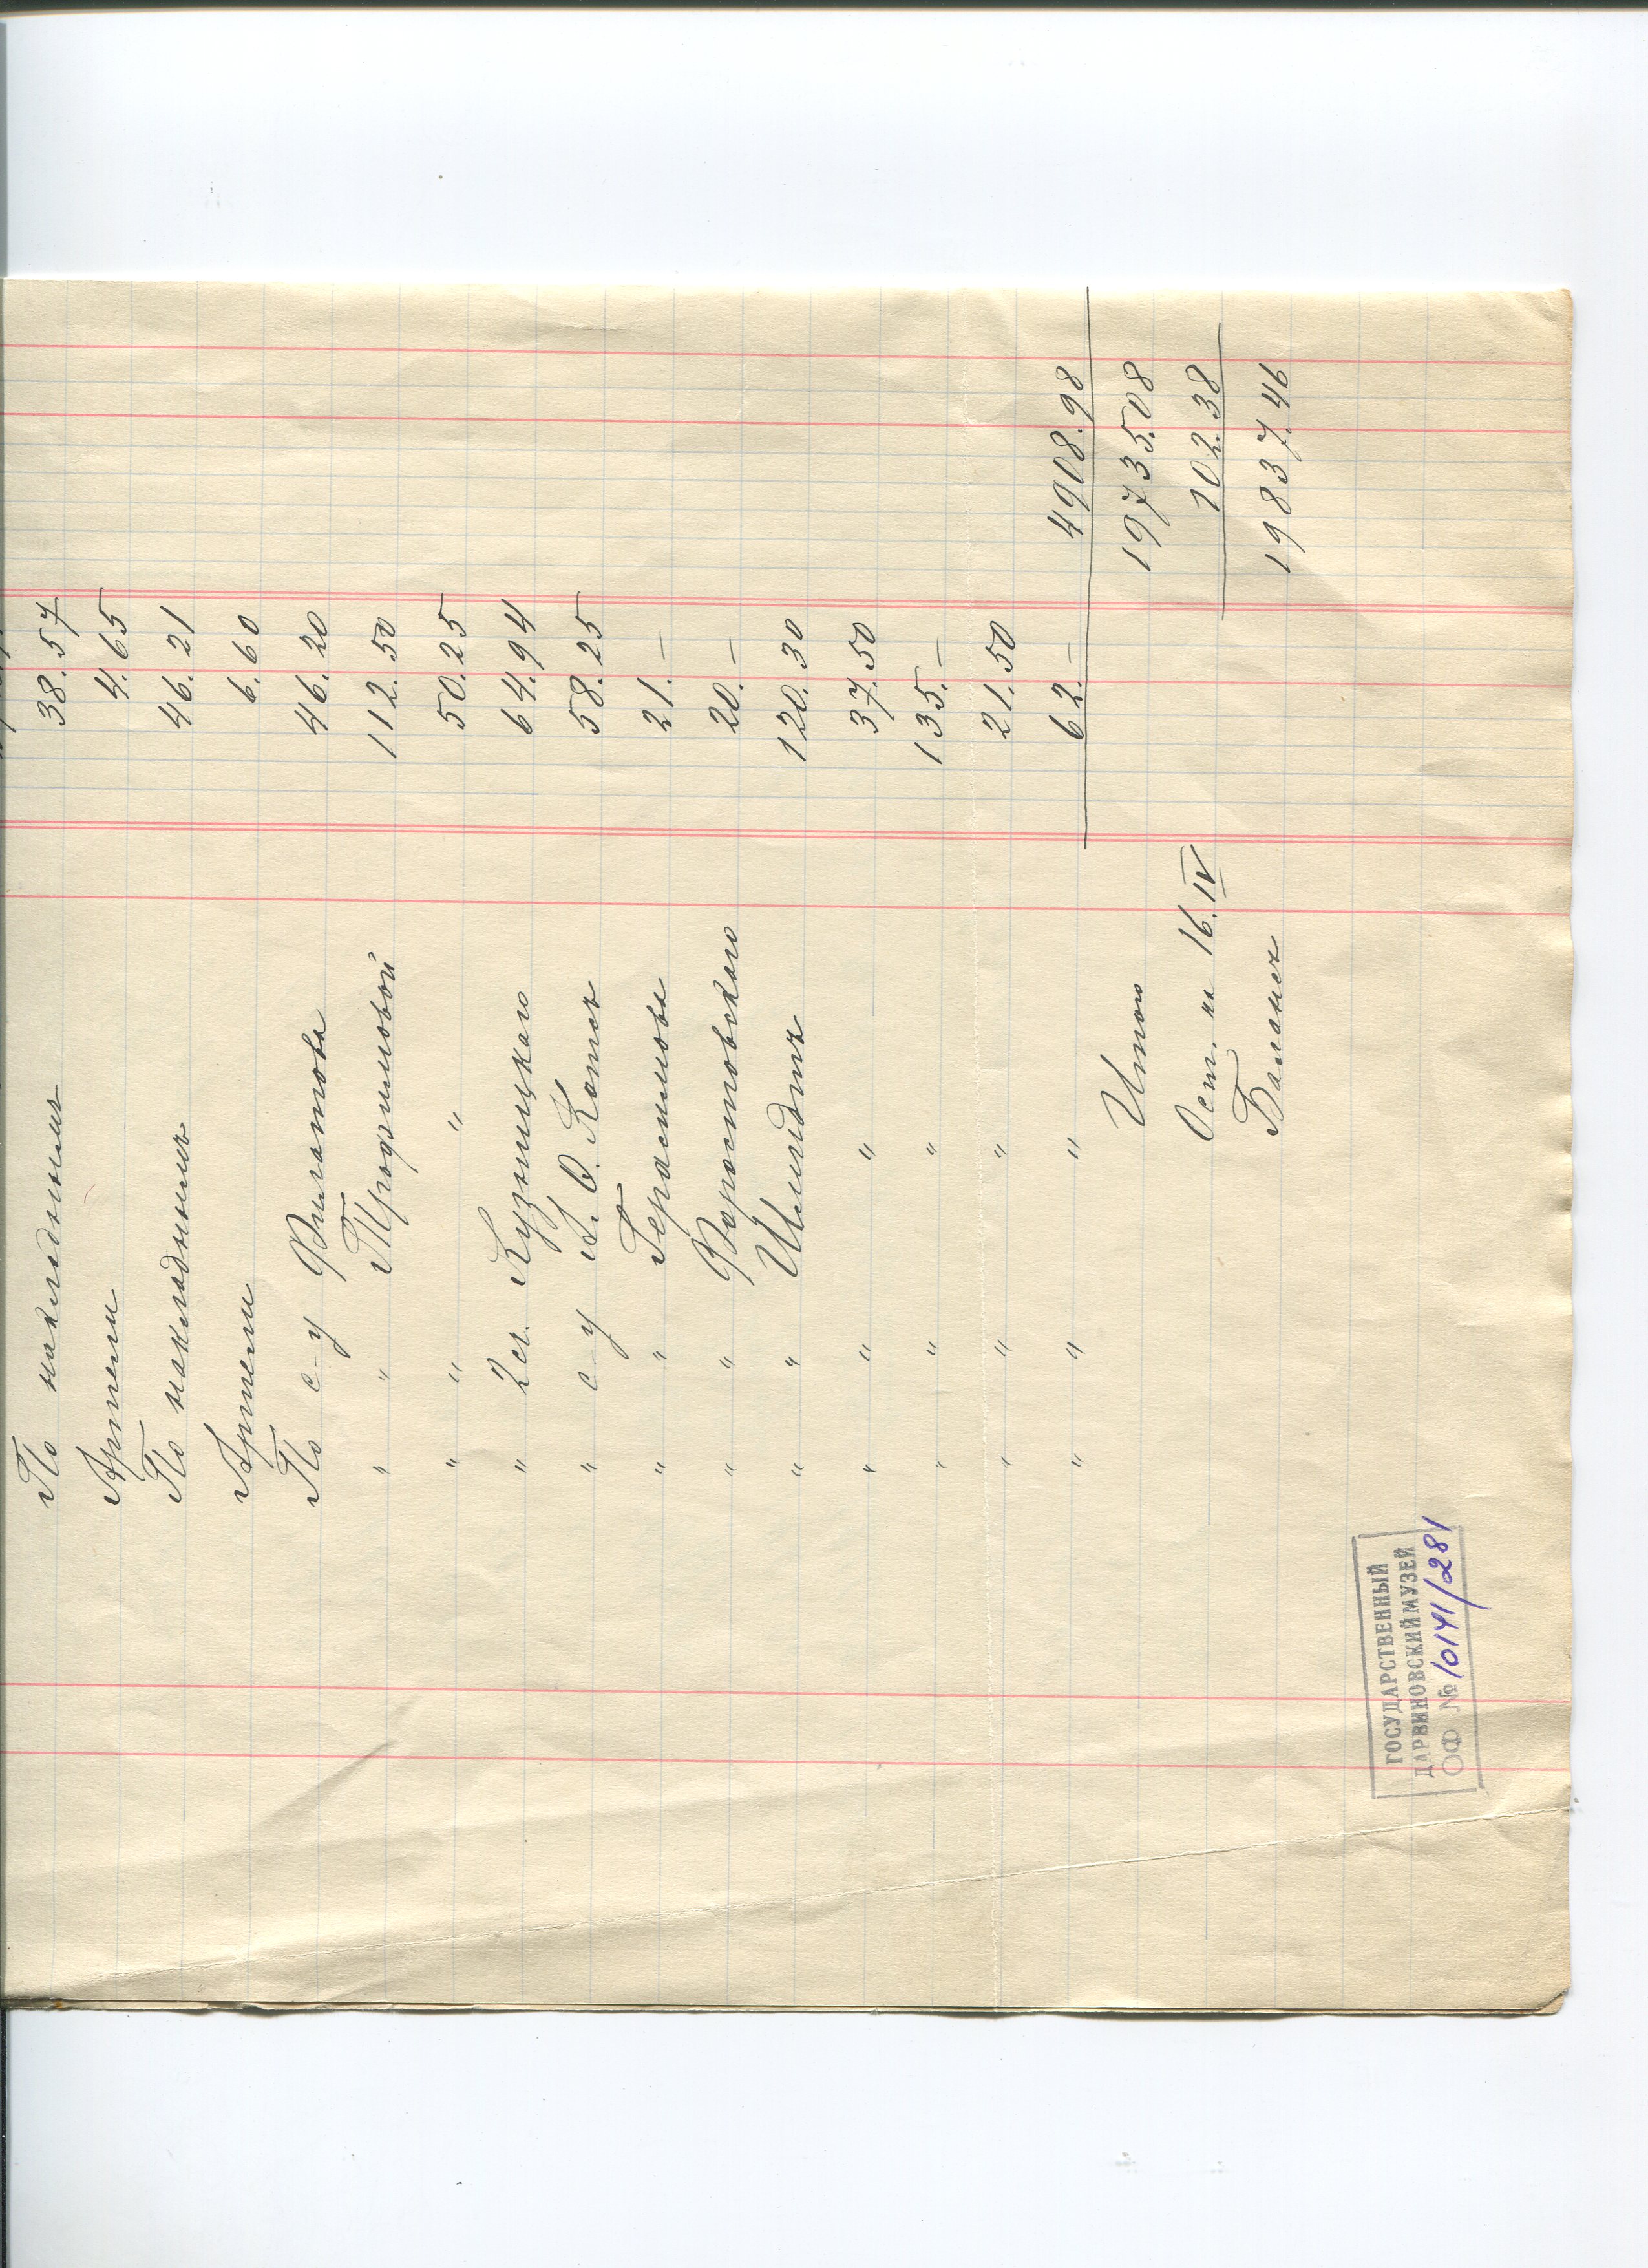 По накладнымъ 38.57
Артели 4.65
По накладнымъ 46.21
Артели 6.60
По с-у Филатова 46.20
" " Трофимовой 112.50
" " " 50.25
" 2 сч. Кузницкаго 64.94
" с-у А. Ф. Котсъ 58.25
" " Герасимова 21.—
" " Форостовскаго 20.—
" " Шмидтъ 120.30
" " " 37.50
" " " 135.—
" " " 21.50
" " " 62.— 4908.98
Итого 19735.08
Ост. на 16.IV 102.38
Балансъ 19837.46
ГОСУДАРСТВЕННЫЙ
ДАРВИНОВСКИЙ МУЗЕЙ
ОФ № 10141/281